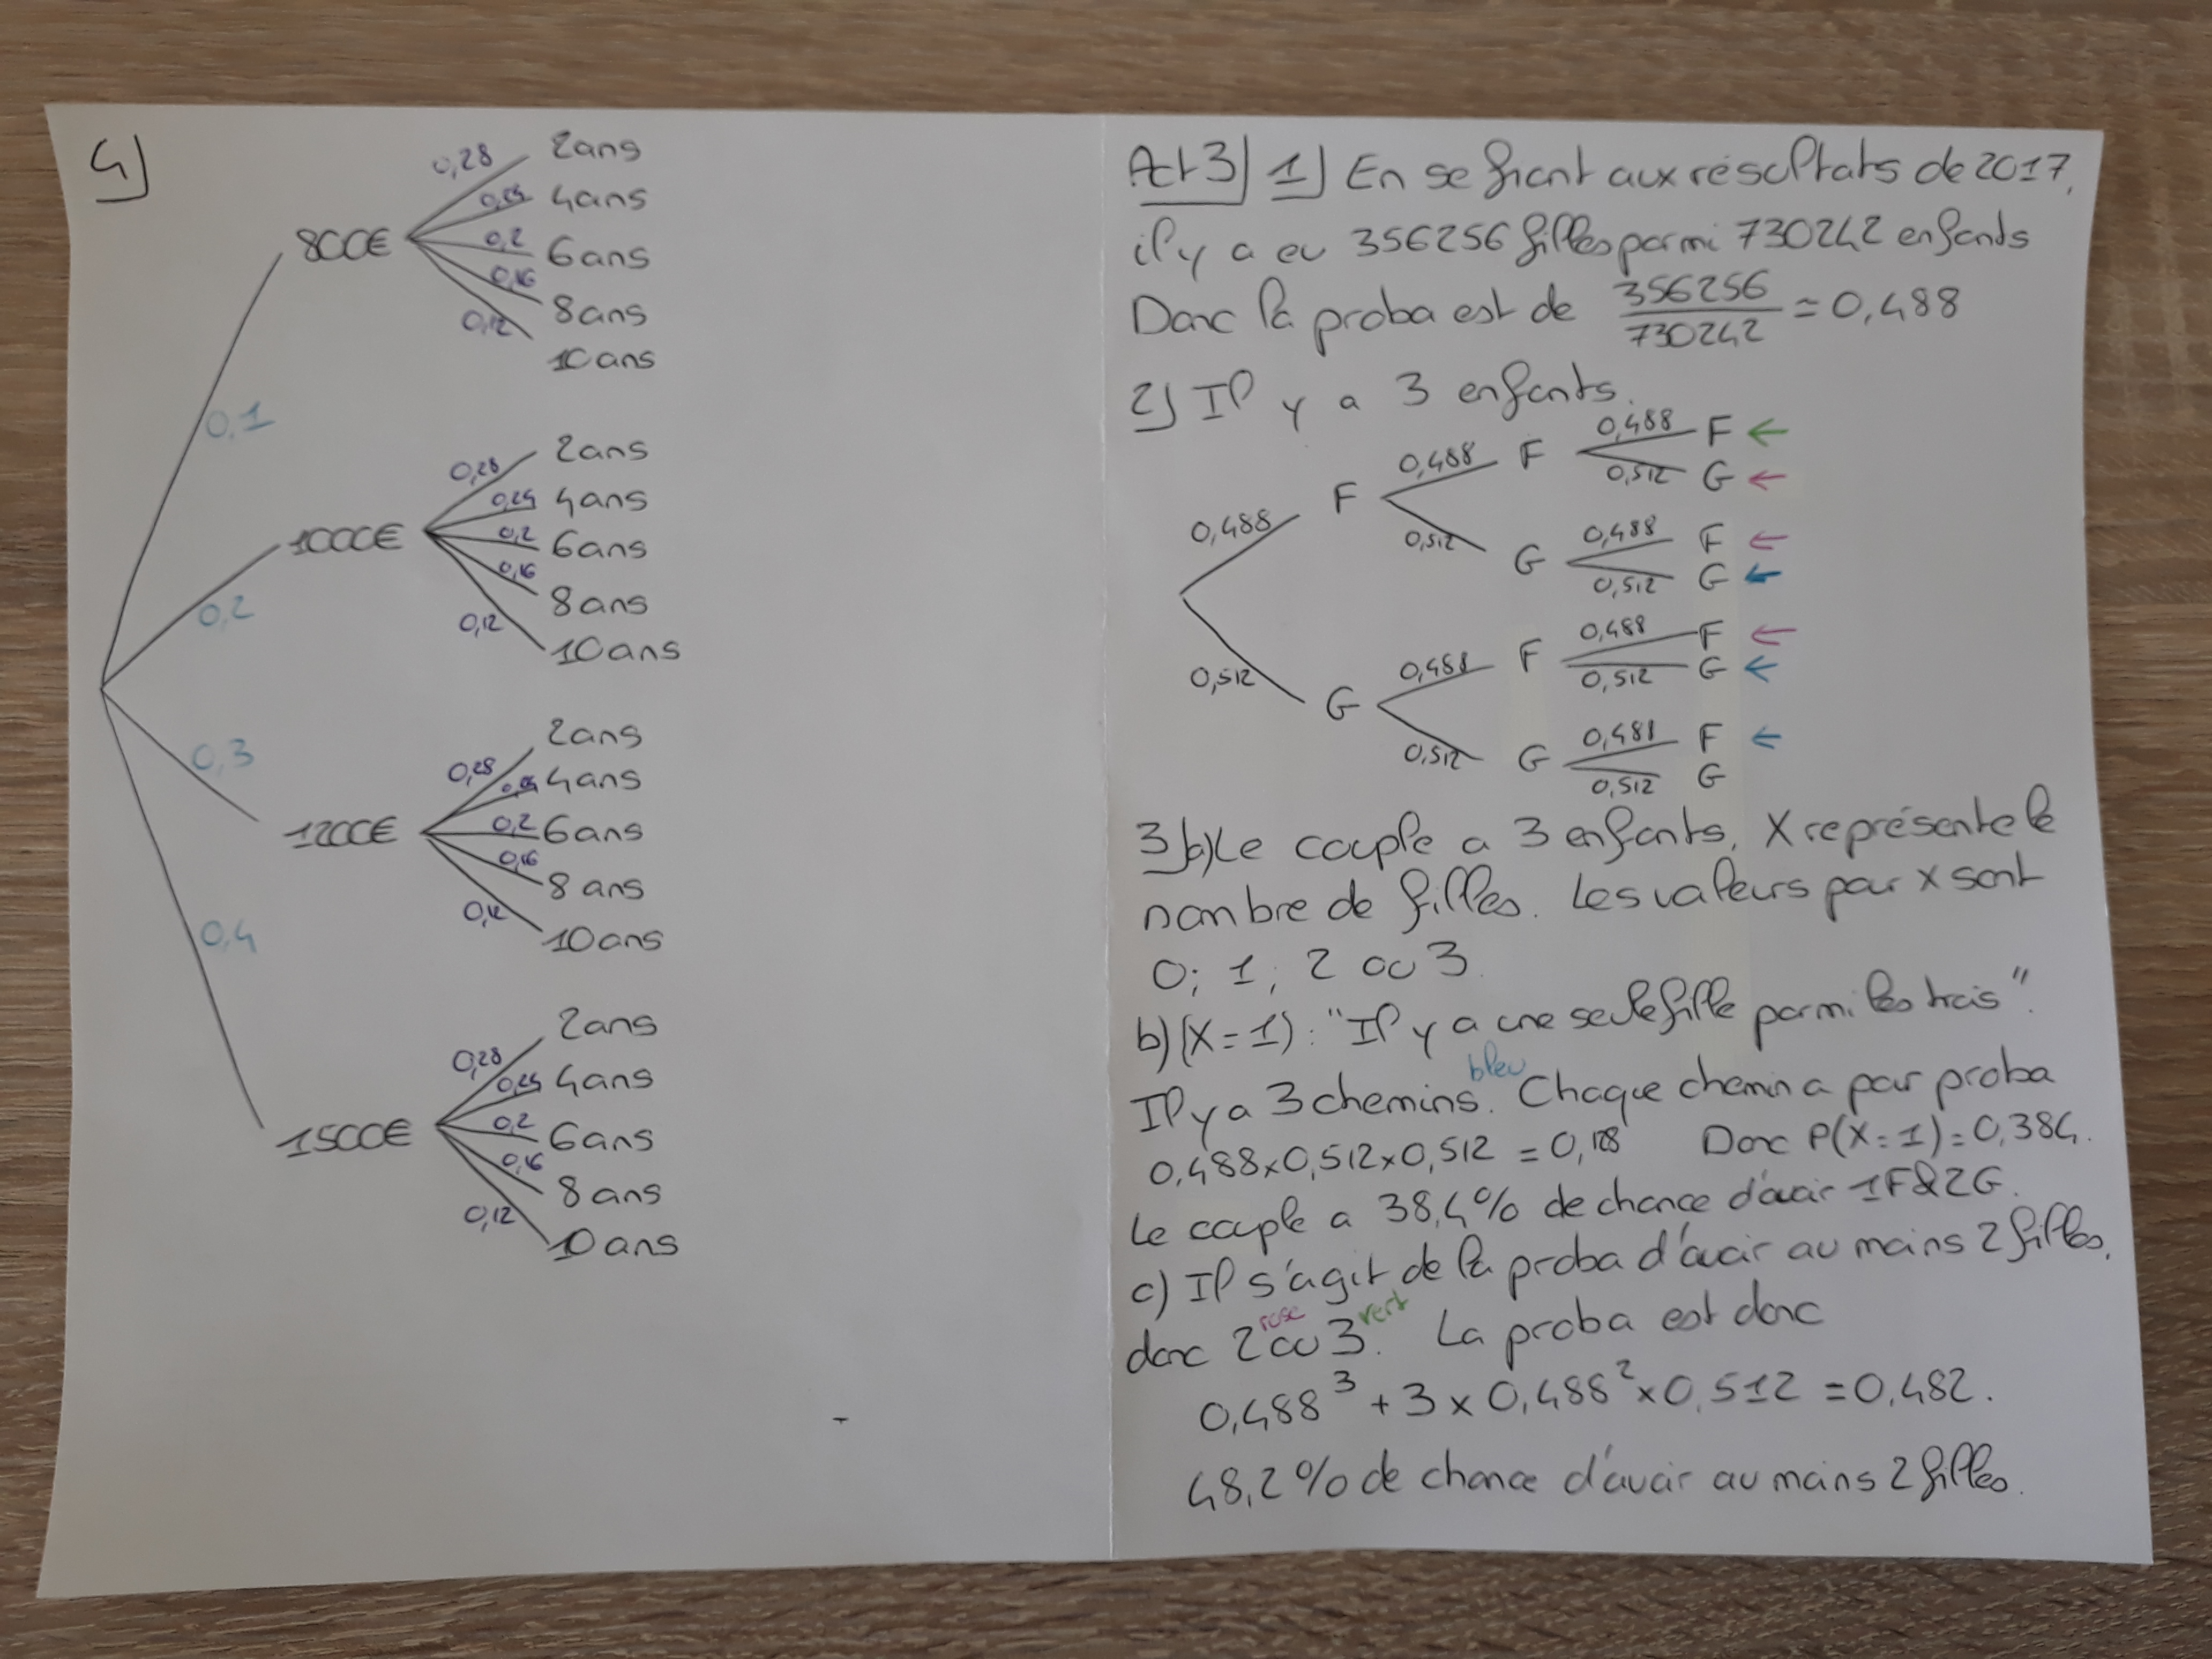 4)
800€
0,28 2ans
0,24 4ans
0,2 6ans
0,16 8ans
0,12 10ans
0,1
1000€
0,28 2ans
0,24 4ans
0,2 6ans
0,16 8ans
0,12 10ans
0,2
1200€
0,28 2ans
0,24 4ans
0,2 6ans
0,16 8 ans
0,12 10ans
0,3
1500€
0,28 2ans
0,24 4ans
0,2 6ans
0,16 8 ans
0,12 10 ans
0,4
Act 3) 1) En se fiant aux résultats de 2017,
il y a eu 356256 filles parmi 730242 enfants
Donc la proba est de 356256/730242 = 0,488
2) Il y a 3 enfants.
0,488 F ←
0,488 F
0,512 G ←
F
0,488
0,488 F ←
0,512 G
0,512 G ←
0,488 F ←
0,488 F
0,512 G ←
0,512
G
0,488 F ←
0,512 G
0,512 G
3)a) Le couple a 3 enfants. X représente le
nombre de filles. Les valeurs pour x sont
0; 1; 2 ou 3.
b) (X=1): "Il y a une seule fille parmi les trois".
bleu
Il y a 3 chemins. Chaque chemin a pour proba
0,488×0,512×0,512 = 0,128 Donc P(X=1)=0,384.
Le couple a 38,4% de chance d'avoir 1F&2G.
c) Il s'agit de la proba d'avoir au moins 2 filles,
rose vert
donc 2 ou 3. La proba est donc
0,488³ + 3 × 0,488² × 0,512 = 0,482.
48,2% de chance d'avoir au moins 2 filles.